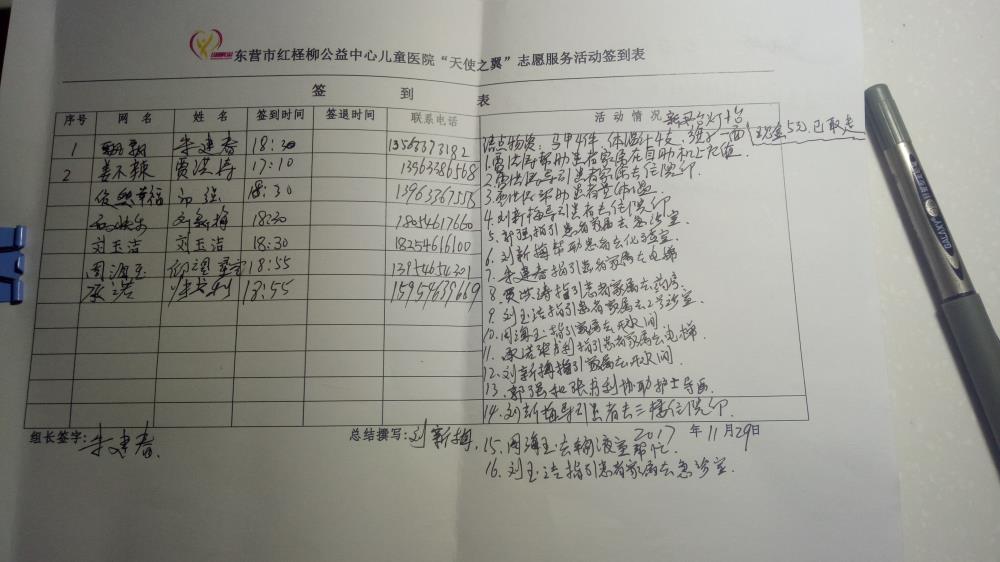 东营市红柽柳公益中心儿童医院“天使之翼”志愿服务活动签到表
签 到 表
序号 网 名 姓 名 签到时间 签退时间 联系电话 活 动 情 况
1 朱建春 18:30 13563373182
2 姜不辣 贾洪涛 17:10 13563386568
悠然幸福 18:30 13963367558
刘新梅 18:30 18054617660
刘玉洁 刘玉洁 18:30 18254616100
周海玉 18:55 13954654301
承诺 18:55 15954639669
现金53元,已取走
清点物资:马甲 件 体温计 支
1.贾洪涛帮助患者家属在自助机上充值.
2. 导引患者家属去住院部.
3. 帮助患者量体温
4.刘新梅导引患者去住院部
5.郭强指引患者家属去急诊室.
6.刘新梅帮助患者去化验室.
7.朱建春指引患者家属去电梯
8.贾洪涛指引患者家属去药房.
9.刘玉洁指引患者家属去2号诊室.
10.周海玉指引家属去开水间
11.承诺 指引患者家属去电梯.
12.刘新梅指引家属去开水间
13.郭强和张 利协助护士导医
14.刘新梅导引患者去三楼住院部.
组长签字:朱建春 总结撰写:刘新梅. 2017 年 11月29日
15.周海玉去输液室帮忙.
16.刘玉洁指引患者家属去急诊室.
GALAXY